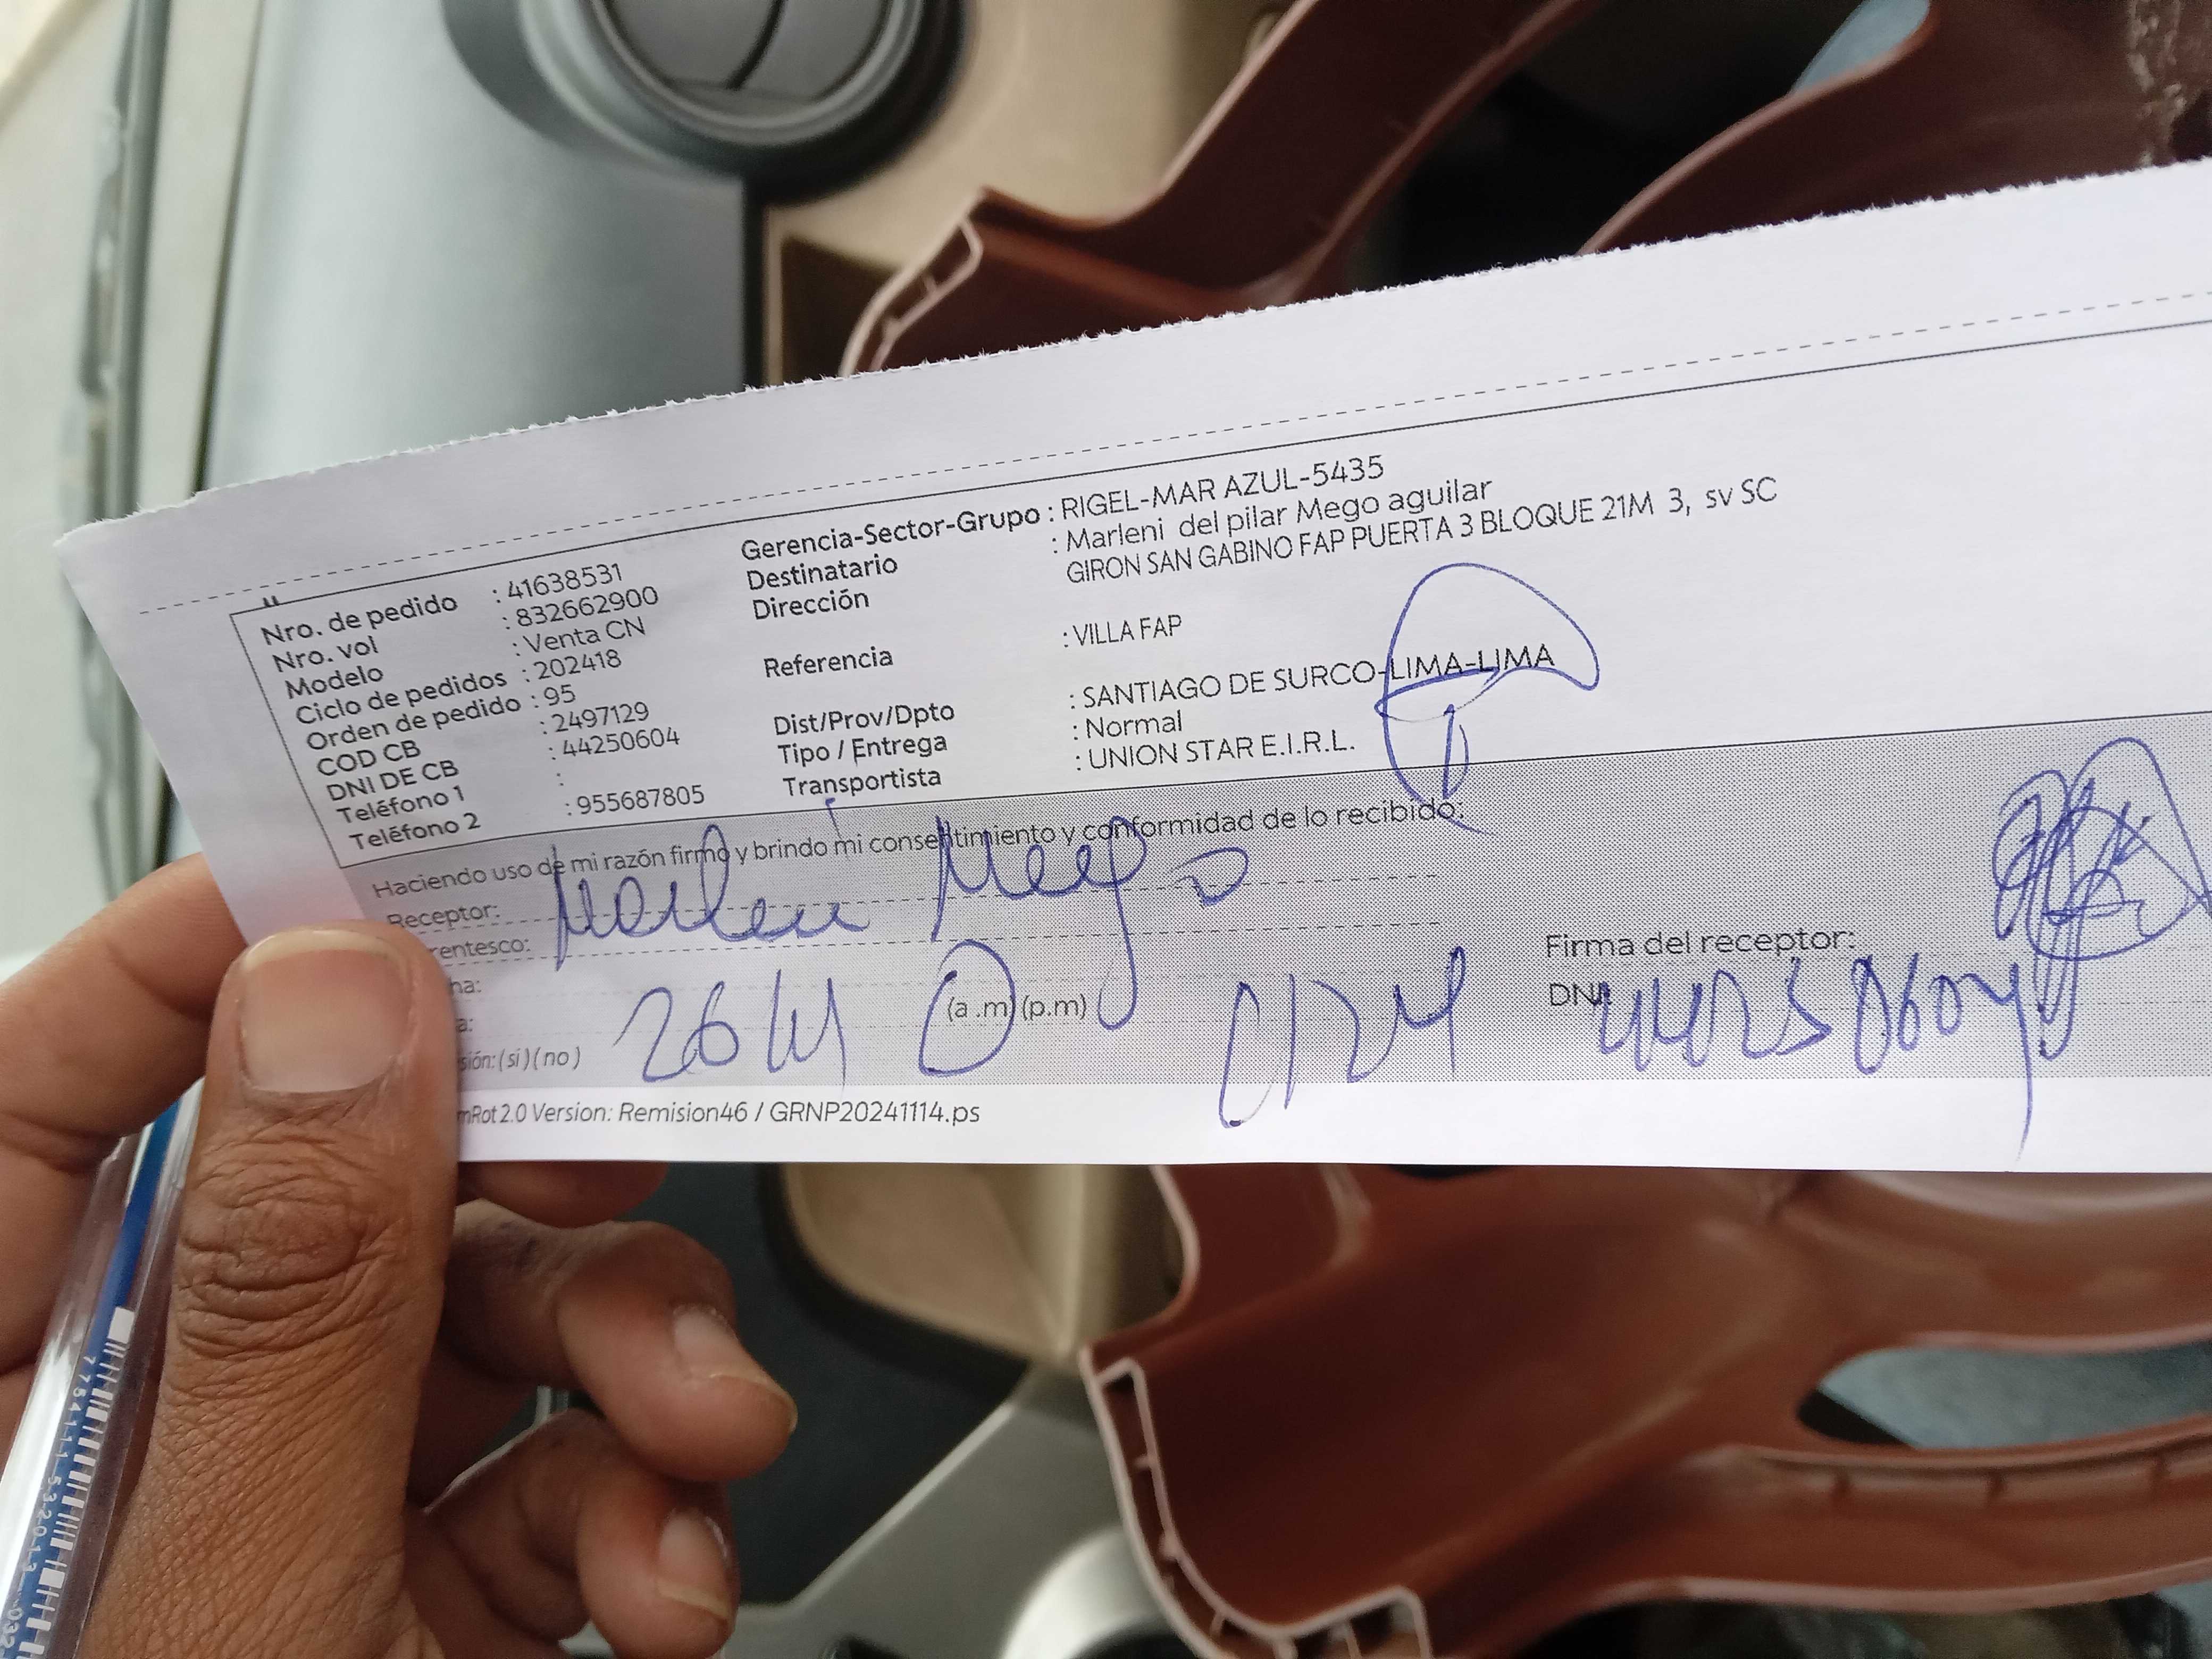 Nro. de pedido : 41638531
Nro. vol : 832662900
Modelo : Venta CN
Ciclo de pedidos : 202418
Orden de pedido : 95
COD CB : 2497129
DNI DE CB : 44250604
Teléfono 1 :
Teléfono 2 : 955687805
Gerencia-Sector-Grupo : RIGEL-MAR AZUL-5435
Destinatario : Marleni del pilar Mego aguilar
Dirección GIRON SAN GABINO FAP PUERTA 3 BLOQUE 21M 3, sv SC
Referencia : VILLA FAP
Dist/Prov/Dpto : SANTIAGO DE SURCO-LIMA-LIMA
Tipo / Entrega : Normal
Transportista : UNION STAR E.I.R.L.
Haciendo uso de mi razón firmo y brindo mi consentimiento y conformidad de lo recibido:
Receptor: Marleni Mego
rentesco:
ha:
a: (a .m) (p.m)
sión: (si) (no)
Firma del receptor:
DNI: 44250604
mRot 2.0 Version: Remision46 / GRNP20241114.ps